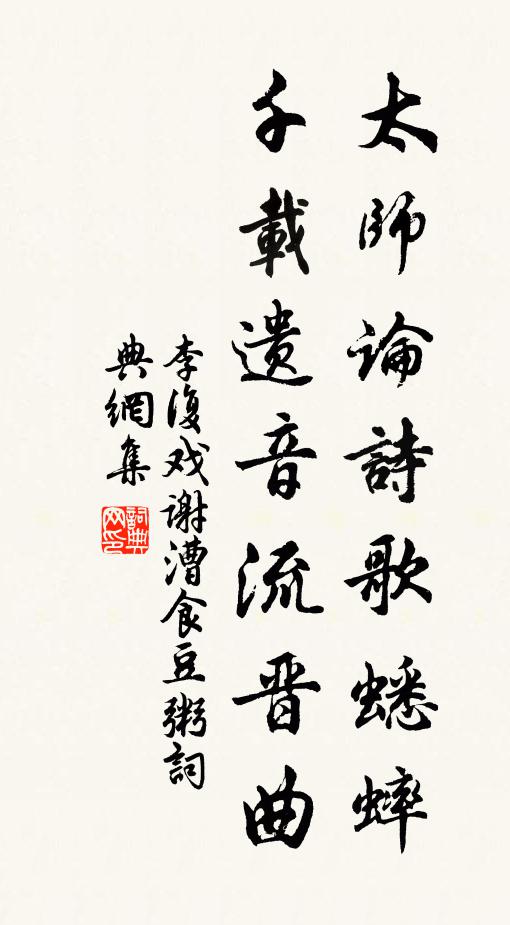 太師論詩歌蟋蟀
千載遺音流晋曲
李復戏谢漕食豆粥詞
典網集
詞典网印